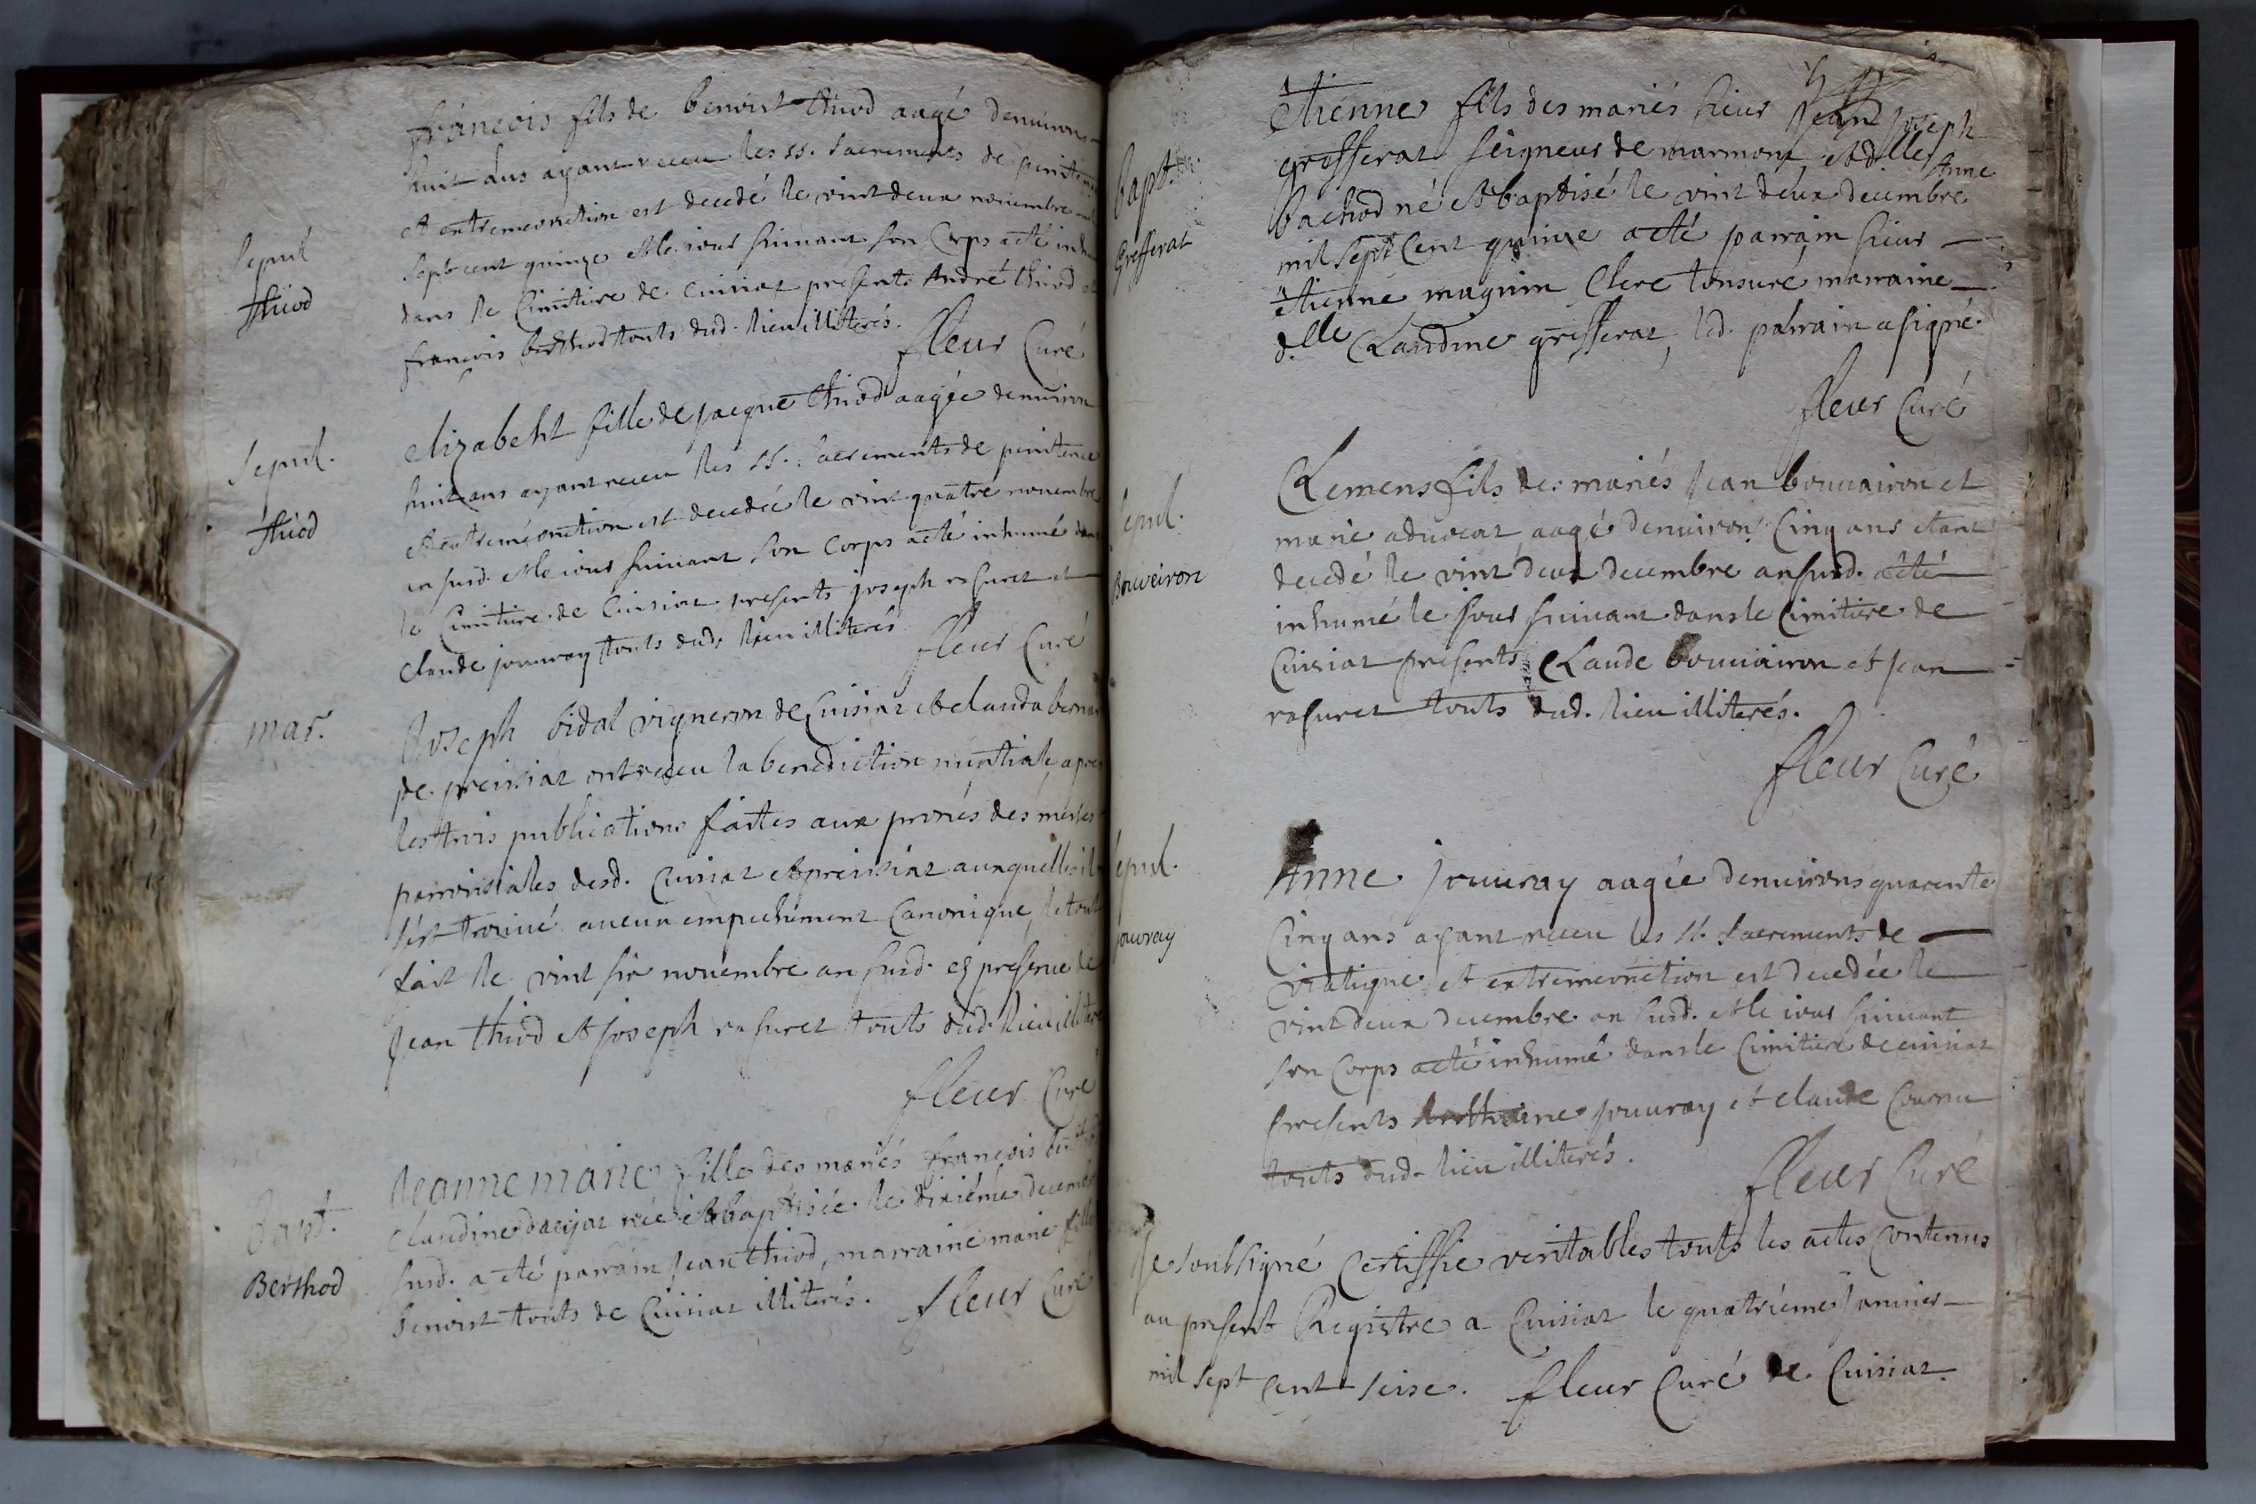 françois fils de benoist thiod aagé denuirons
huit ans ayant receu les ss. sacrements de penitence
et extremeonction est decedé le vint deux nouembre mil
sept cent quinze et le iour suiuant son corps a eté inhumé
Sepul
dans le Cimitiere de cuisiat presents André thiod et
thiod
françois berthod touts dud. lieu illiterés.
fleur Curé
elizabeht fille de jacque thiod aagée denuiron
Sepul.
huit ans ayant receu les ss. sacrements de penitence
et extremeonction est decedée le vint quatre nouembre
thiod
an susd. et le iour suiuant son corps a eté inhumé dans
le Cimitiere de Cuisiat presents joseph rasuret et
Claude jouuray touts dud. lieu illiterés
fleur Curé
mar.
Joseph bidal vigneron de Cuisiat et clauda
de preissiat ont receu la benediction nuptiale apres
les trois publications faites aux prones des messes
parroissiales desd. Cuisiat et preissiat auxquelles il
s'est trouué aucun empechement Canonique, le tout
fait le vint six nouembre an susd. en presence de
Jean thiod et joseph rasuret touts dud. lieu illiteré
fleur Curé
Jeanne marie fille des mariés françois
Bapt.
Claudine né et baptisée le dixiéme decembre
susd. a eté parrain jean thiod, marraine marie fille
Berthod
benoist touts de Cuisiat illiterés. fleur Curé
étienne fils des mariés sieur Jean joseph
grosserat seigneur de marmont et dlle Anne
Bapt.
bachod né et baptisé le vint deux decembre
mil sept Cent quinze a eté parrain sieur
Grosserat
étienne magnin Clerc tonsuré marraine
d.lle Claudine grosserat, led. parrain a signé.
fleur Curé
Clemens fils des mariés jean bouuairon et
épul.
marie aduocat, aagé denuiron Cinq ans etant
decedé le vint deux decembre an susd. a eté
Bouveiron
inhumé le jour suiuant dans le Cimitiere de
Cuisiat presents Claude bouuairon et jean
rasuret touts dud. lieu illiterés.
fleur Curé
Anne jouuray aagée denuirons quarente
épul.
Cinq ans ayant receu les ss. sacrements de
jouvray
viatique et extremeonction est decedée le
vint deux decembre an susd. et le iour suiuant
son Corps a eté inhumé dans le Cimitiere de cuisiat
presents jouuray et claude Cournu
touts dud. lieu illiterés.
fleur Curé
Je soubsigné Certiffie veritables touts les actes Contenus
au present Registre a Cuisiat le quatriéme januier
mil sept cent seise. fleur Curé de Cuisiat.